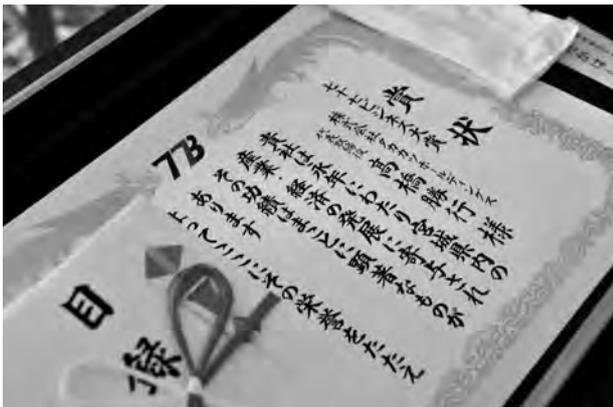 賞状
七十七ビジネス大賞
株式会社タカカツホールディングス
代表取締役
高橋勝行様
貴社は永年にわたり宮城県内の
産業、経済の発展に寄与され
その功績はまことに顕著なものが
あります
よってここにその栄誉をたたえ
77B
目録